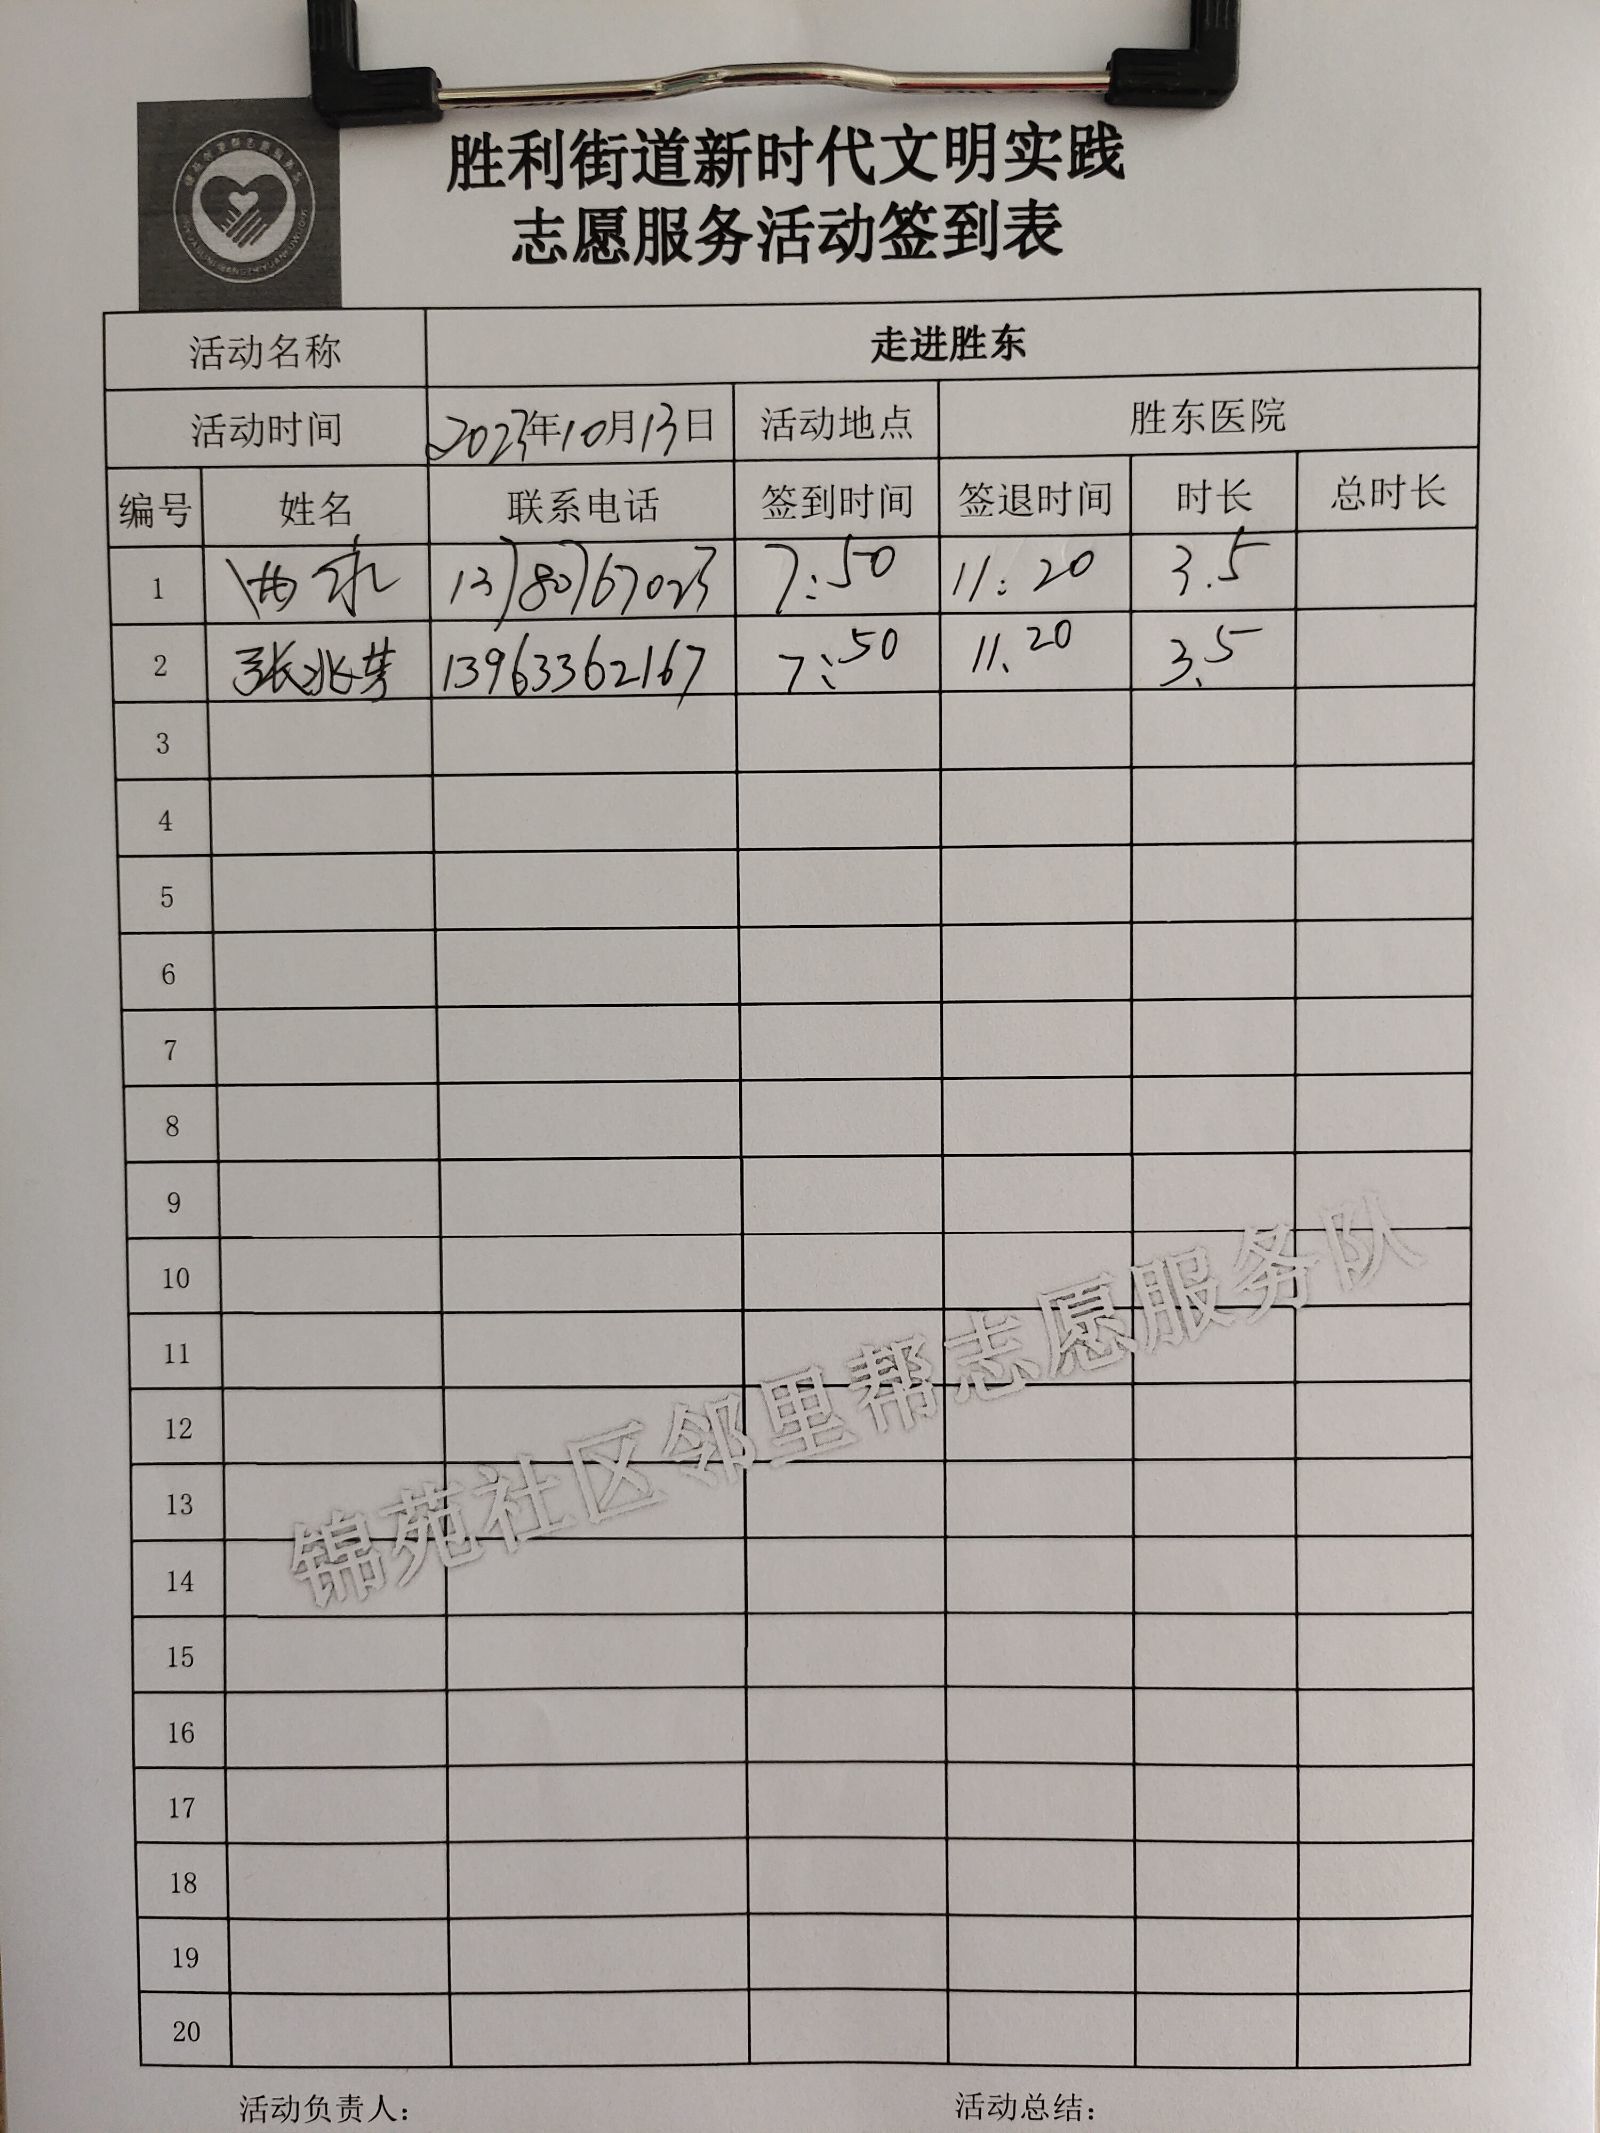 胜利街道新时代文明实践
志愿服务活动签到表
活动名称 走进胜东
活动时间 2023年10月13日 活动地点 胜东医院
编号 姓名 联系电话 签到时间 签退时间 时长 总时长
1 13780767023 7:50 11:20 3.5
2 张兆芳 13963362167 7:50 11.20 3.5
3
4
5
6
7
8
9
10
11
12
13
14
15
16
17
18
19
20
锦苑社区邻里帮志愿服务队
活动负责人: 活动总结: